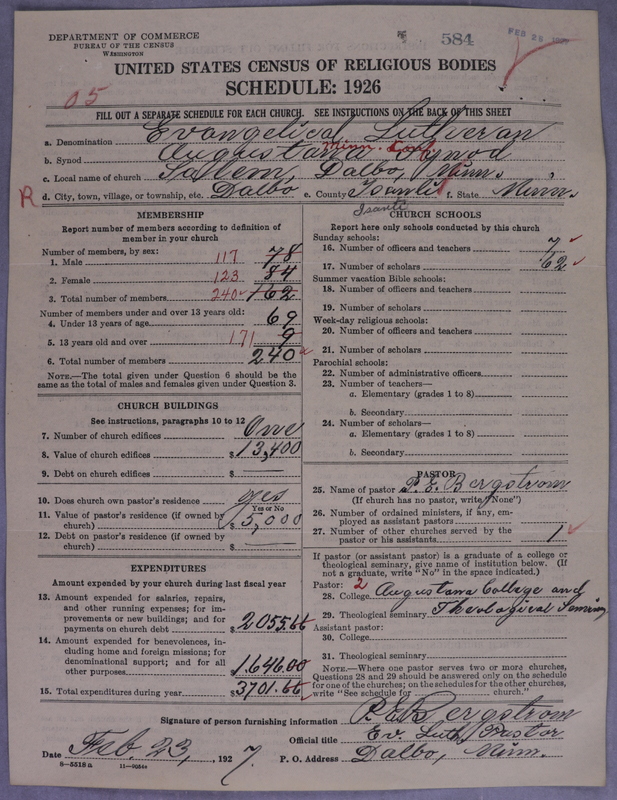 DEPARTMENT OF COMMERCE
BUREAU OF THE CENSUS
WASHINGTON
584
FEB 28 1927
UNITED STATES CENSUS OF RELIGIOUS BODIES
SCHEDULE: 1926
05
FILL OUT A SEPARATE SCHEDULE FOR EACH CHURCH. SEE INSTRUCTIONS ON THE BACK OF THIS SHEET
a. Denomination Evangelical Lutheran
b. Synod Augustana Synod Minn. Conf.
c. Local name of church Salem, Dalbo, Minn.
R d. City, town, village, or township, etc. Dalbo e. County Isanti f. State Minn.
Isanti
MEMBERSHIP
Report number of members according to definition of
member in your church
Number of members, by sex:
1. Male 117 78
2. Female 123 84
3. Total number of members 240 162
Number of members under and over 13 years old:
4. Under 13 years of age 69
5. 13 years old and over 171 9
6. Total number of members 240
NOTE.—The total given under Question 6 should be the
same as the total of males and females given under Question 3.
CHURCH BUILDINGS
See instructions, paragraphs 10 to 12
7. Number of church edifices One
8. Value of church edifices $13,400
9. Debt on church edifices $ —
10. Does church own pastor's residence yes
Yes or No
11. Value of pastor's residence (if owned by
church) $5,000
12. Debt on pastor's residence (if owned by
church) $ —
EXPENDITURES
Amount expended by your church during last fiscal year
13. Amount expended for salaries, repairs,
and other running expenses; for im-
provements or new buildings; and for
payments on church debt $2055.66
14. Amount expended for benevolences, in-
cluding home and foreign missions; for
denominational support; and for all
other purposes 1,646.00
15. Total expenditures during year $3701.66
CHURCH SCHOOLS
Report here only schools conducted by this church
Sunday schools:
16. Number of officers and teachers 7
17. Number of scholars 62
Summer vacation Bible schools:
18. Number of officers and teachers
19. Number of scholars
Week-day religious schools:
20. Number of officers and teachers
21. Number of scholars
Parochial schools:
22. Number of administrative officers
23. Number of teachers—
a. Elementary (grades 1 to 8)
b. Secondary
24. Number of scholars—
a. Elementary (grades 1 to 8)
b. Secondary
PASTOR
25. Name of pastor P. E. Bergstrom
(If church has no pastor, write "None")
26. Number of ordained ministers, if any, em-
ployed as assistant pastors
27. Number of other churches served by the
pastor or his assistants 1
If pastor (or assistant pastor) is a graduate of a college or
theological seminary, give name of institution below. (If
not a graduate, write "No" in the space indicated.)
Pastor: 2
28. College Augustana College and
29. Theological seminary Theological Seminary
Assistant pastor:
30. College
31. Theological seminary
NOTE.—Where one pastor serves two or more churches,
Questions 28 and 29 should be answered only on the schedule
for one of the churches; on the schedules for the other churches,
write "See schedule for church."
Signature of person furnishing information P. E. Bergstrom
Official title Ev. Luth. Pastor
Date Feb. 23, 1927. P. O. Address Dalbo, Minn.
8—5518a 11—9054a